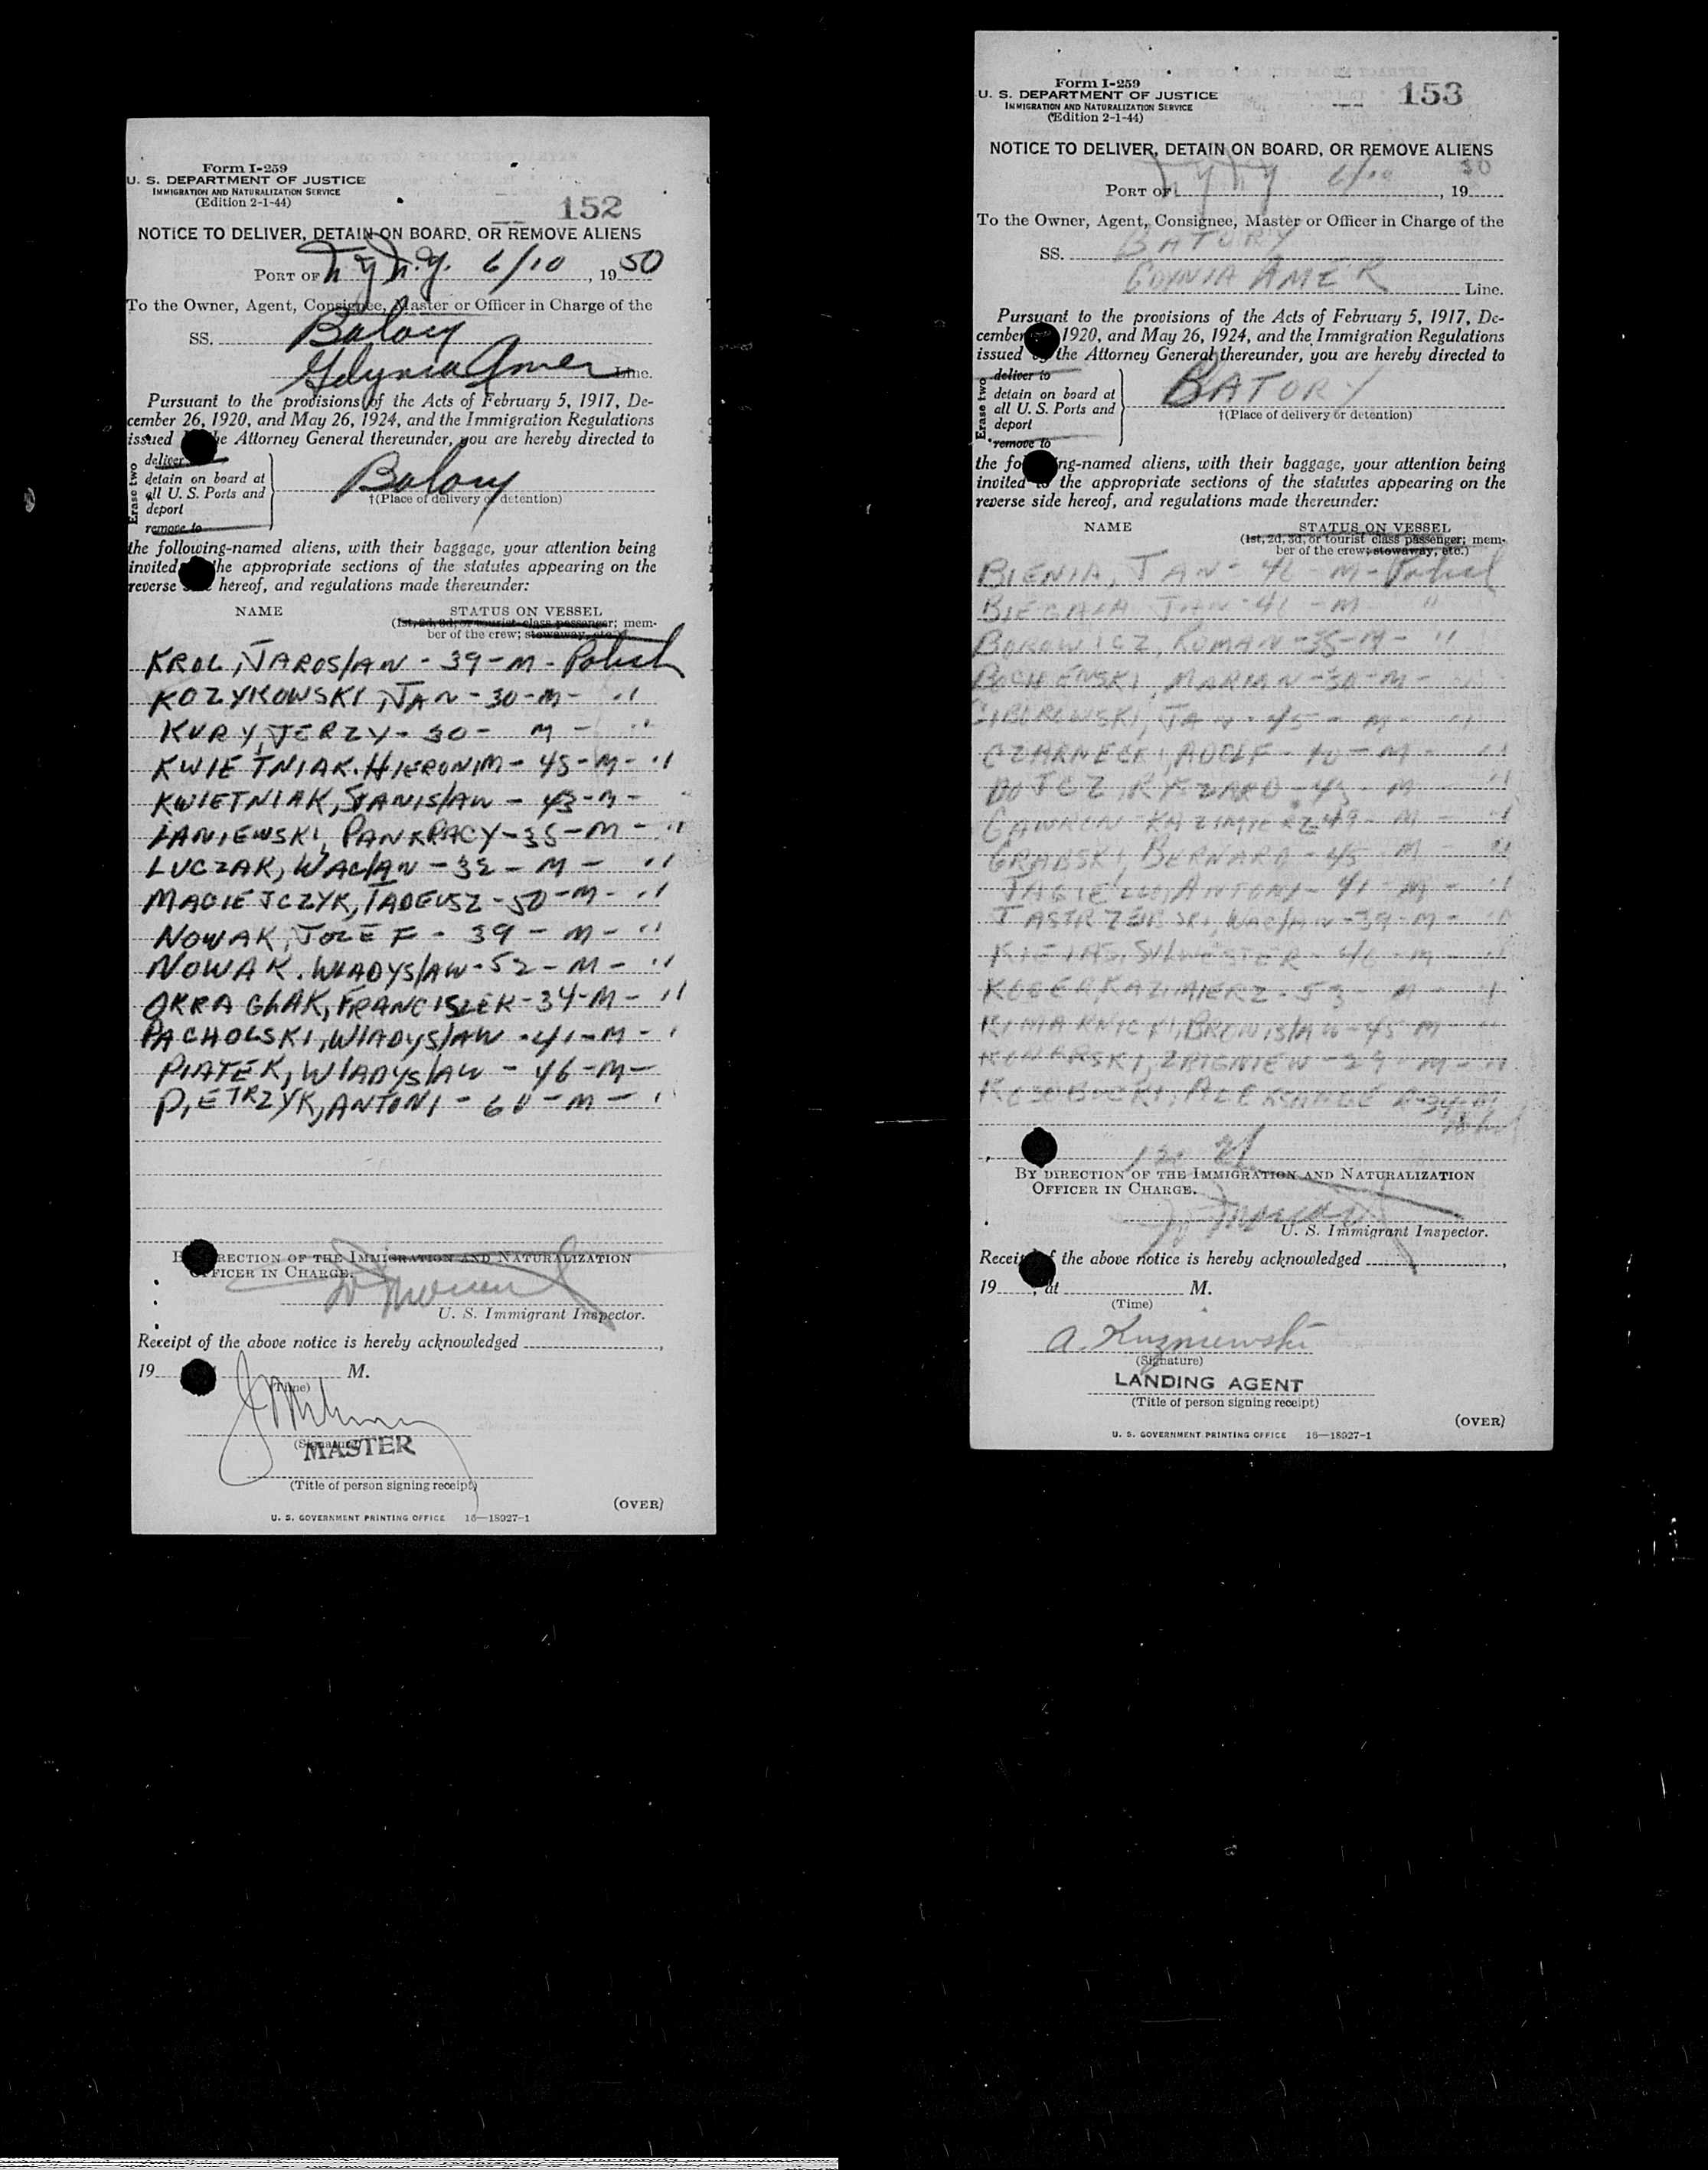 Form I-259
U. S. DEPARTMENT OF JUSTICE
IMMIGRATION AND NATURALIZATION SERVICE
(Edition 2-1-44)
152
NOTICE TO DELIVER, DETAIN ON BOARD, OR REMOVE ALIENS
PORT OF N.Y. N.Y. 6/10, 1950
To the Owner, Agent, Consignee, Master or Officer in Charge of the
SS. Batory
Gdynia Amer Line.
Pursuant to the provisions of the Acts of February 5, 1917, De-
cember 26, 1920, and May 26, 1924, and the Immigration Regulations
issued the Attorney General thereunder, you are hereby directed to
Erase two
deliver
detain on board at
all U. S. Ports and
deport
remove to
Batory
†(Place of delivery or detention)
the following-named aliens, with their baggage, your attention being
invited the appropriate sections of the statutes appearing on the
reverse hereof, and regulations made thereunder:
NAME STATUS ON VESSEL
(1st, 2d, 3d, or tourist class passenger; mem-
ber of the crew; stowaway, etc.)
KROL, JAROSlAW - 39 - M - Polish
KOZYKOWSKI, JAN - 30 - M - "
KURY, JERZY - 30 - M - "
KWIETNIAK. HIERONIM - 45 - M - "
KWIETNIAK, STANISlAW - 43 - M - "
LANIEWSKI, PANKRACY - 35 - M - "
LUCZAK, WAClAW - 32 - M - "
MACIEJCZYK, TADEUSZ - 50 - M - "
NOWAK, JOZEF - 39 - M - "
NOWAK. WLADYSlAW - 52 - M - "
OKRAGLAK, FRANCISZEK - 34 - M - "
PACHOLSKI, WlADYSlAW - 41 - M - "
PIATEK, WlADYSlAW - 46 - M -
PIETRZYK, ANTONI - 60 - M - "
BY DIRECTION OF THE IMMIGRATION AND NATURALIZATION
OFFICER IN CHARGE.
U. S. Immigrant Inspector.
Receipt of the above notice is hereby acknowledged ,
19 M.
(Time)
(Signature)
MASTER
(Title of person signing receipt)
(OVER)
U. S. GOVERNMENT PRINTING OFFICE 16—18927-1
Form I-259
U. S. DEPARTMENT OF JUSTICE
IMMIGRATION AND NATURALIZATION SERVICE
(Edition 2-1-44)
153
NOTICE TO DELIVER, DETAIN ON BOARD, OR REMOVE ALIENS
PORT OF N.Y. N.Y. 6/10, 1950
To the Owner, Agent, Consignee, Master or Officer in Charge of the
SS. BATORY
GDYNIA AMER Line.
Pursuant to the provisions of the Acts of February 5, 1917, De-
cember 1920, and May 26, 1924, and the Immigration Regulations
issued the Attorney General thereunder, you are hereby directed to
Erase two
deliver to
detain on board at
all U. S. Ports and
deport
remove to
BATORY
†(Place of delivery or detention)
the following-named aliens, with their baggage, your attention being
invited to the appropriate sections of the statutes appearing on the
reverse side hereof, and regulations made thereunder:
NAME STATUS ON VESSEL
(1st, 2d, 3d, or tourist class passenger; mem-
ber of the crew; stowaway, etc.)
BIENIA, JAN - 46 - M - Polish
BIEGALA JAN - 41 - M "
BOROWICZ, ROMAN - 35 - M - "
BOCHENSKI, MARIAN - 30 - M -
CIBOROWSKI, JAN - 45 - M - "
CZARNECKI, ADOLF - 40 - M - "
DOJCZ, RYSZARD - 43 - M "
GAWRON KAZIMIERZ - 49 - M - "
GRABSKI, BERNARD - 45 M - "
JAGIELLO, ANTONI - 41 - M - "
JASTRZEBSKI, WAClAW - 39 - M - "
SYLWESTER - 46 - M - "
KOBER, KAZIMIERZ - 53 - M - "
BRONISlAW - 45 M - "
ZBIGNIEW - 29 - M - "
34 - M
Polish
BY DIRECTION OF THE IMMIGRATION AND NATURALIZATION
OFFICER IN CHARGE.
U. S. Immigrant Inspector.
Receipt of the above notice is hereby acknowledged ,
19 , at M.
(Time)
A. Kuzniewski
(Signature)
LANDING AGENT
(Title of person signing receipt)
(OVER)
U. S. GOVERNMENT PRINTING OFFICE 16—18927-1